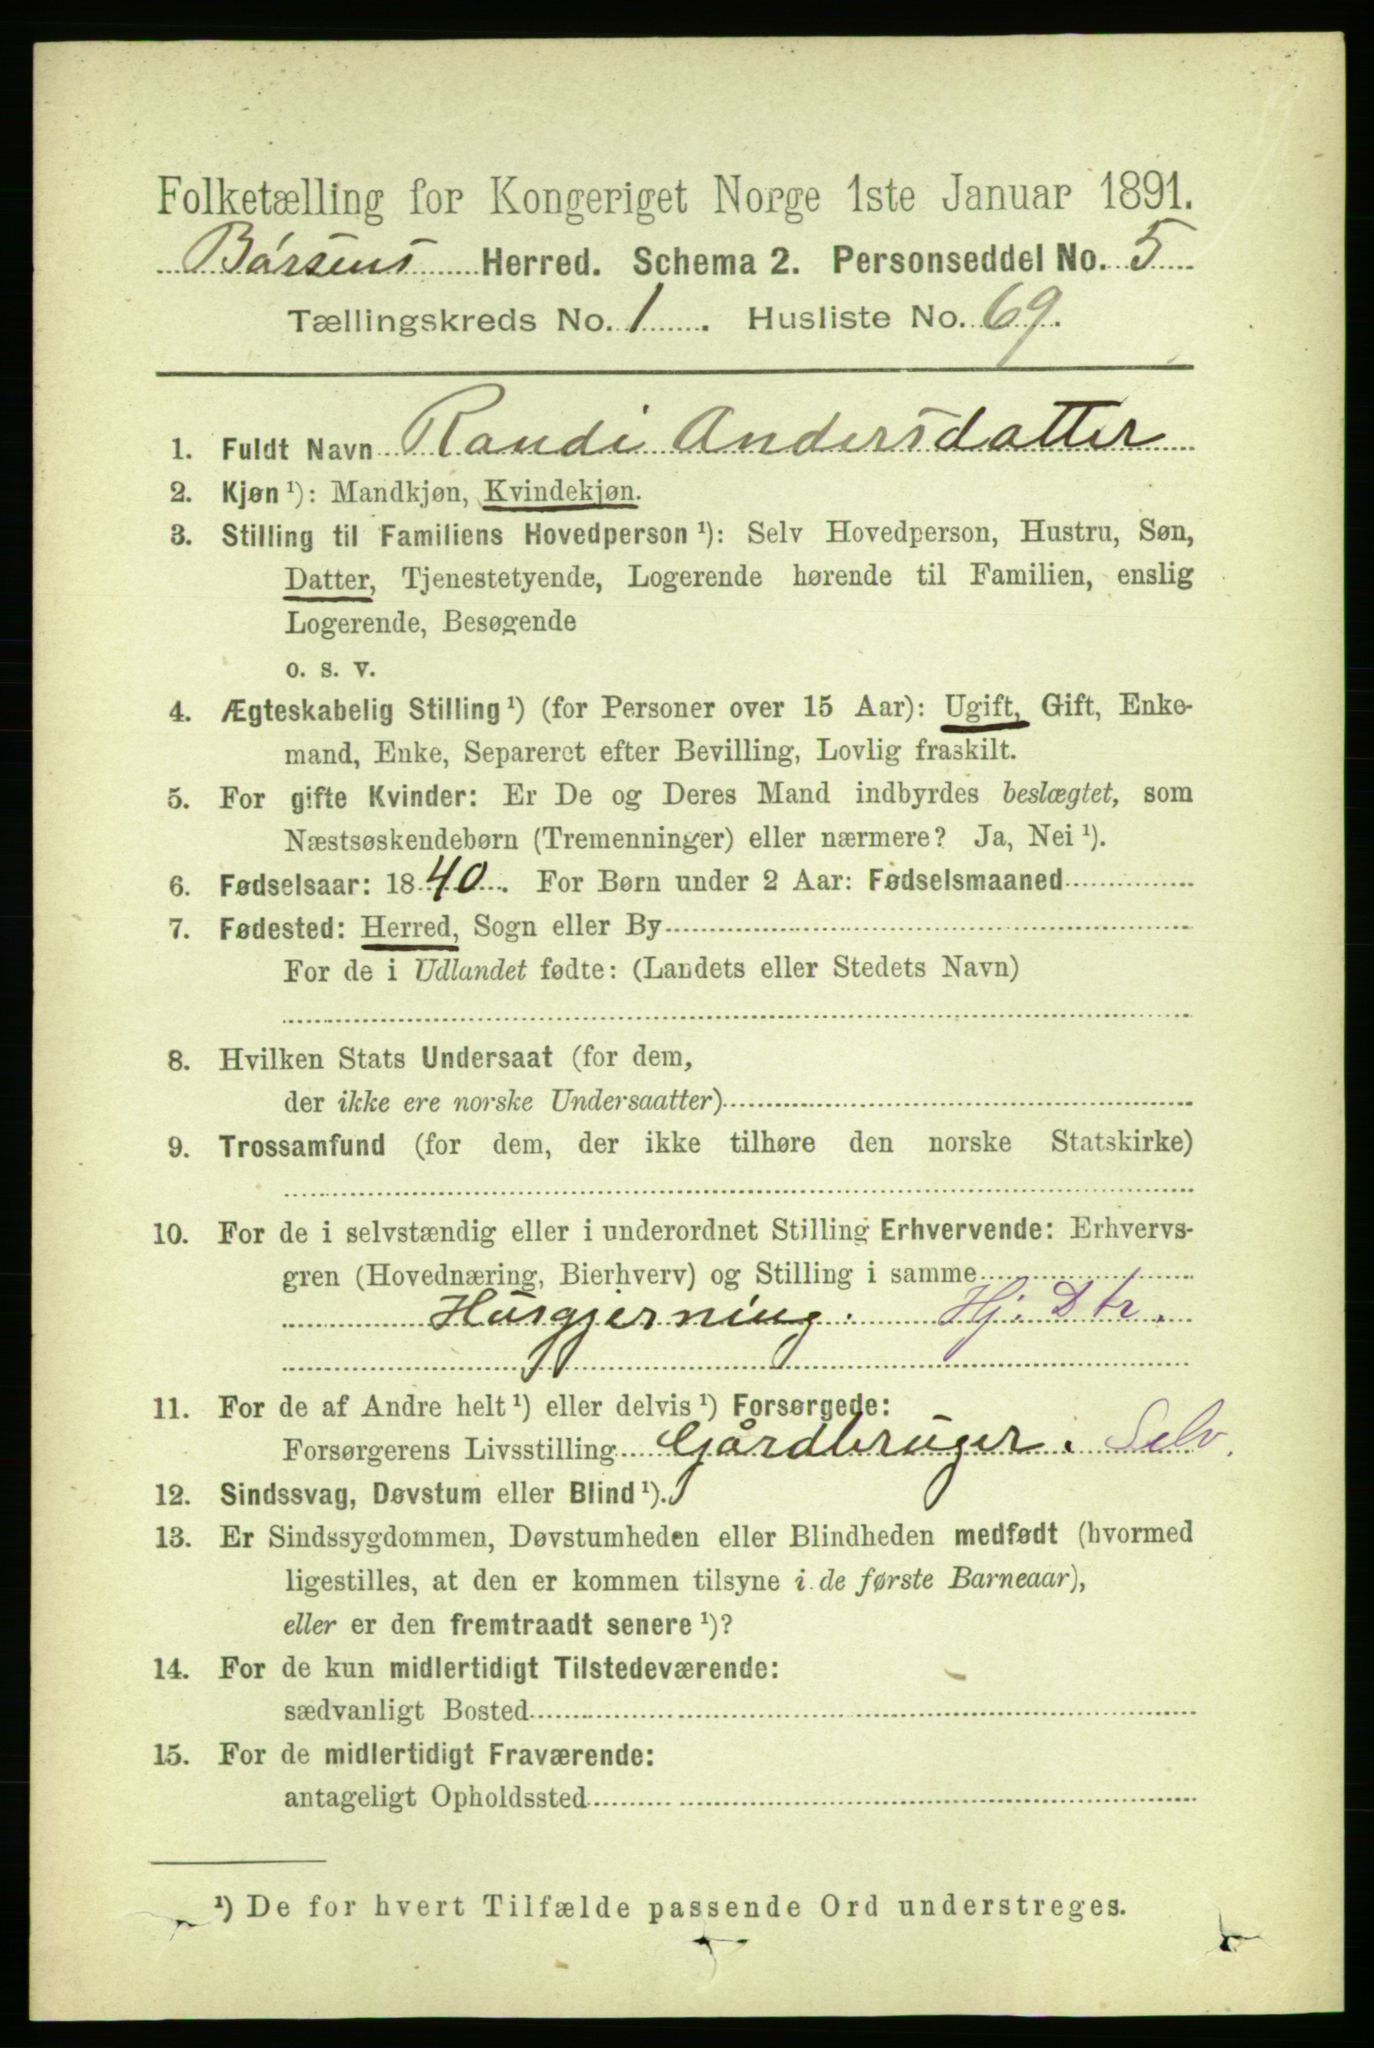 Folketælling for Kongeriget Norge 1ste Januar 1891.
Børsens Herred. Schema 2. Personseddel No. 5
Tællingskreds No. 1. Husliste No. 69.
1. Fuldt Navn Randi Andersdatter
2. Kjøn ¹): Mandkjøn, Kvindekjøn.
3. Stilling til Familiens Hovedperson ¹): Selv Hovedperson, Hustru, Søn,
Datter, Tjenestetyende, Logerende hørende til Familien, enslig
Logerende, Besøgende
o. s. v.
4. Ægteskabelig Stilling ¹) (for Personer over 15 Aar): Ugift, Gift, Enke-
mand, Enke, Separeret efter Bevilling, Lovlig fraskilt.
5. For gifte Kvinder: Er De og Deres Mand indbyrdes beslægtet, som
Næstsøskendebørn (Tremenninger) eller nærmere? Ja, Nei ¹).
6. Fødselsaar: 1840. For Børn under 2 Aar: Fødselsmaaned
7. Fødested: Herred, Sogn eller By
For de i Udlandet fødte: (Landets eller Stedets Navn)
8. Hvilken Stats Undersaat (for dem,
der ikke ere norske Undersaatter)
9. Trossamfund (for dem, der ikke tilhøre den norske Statskirke)
10. For de i selvstændig eller i underordnet Stilling Erhvervende: Erhvervs-
gren (Hovednæring, Bierhverv) og Stilling i samme
Husgjerning. Hj. Dtr.
11. For de af Andre helt ¹) eller delvis ¹) Forsørgede:
Forsørgerens Livsstilling Gårdbruger. Selv.
12. Sindssvag, Døvstum eller Blind ¹).
13. Er Sindssygdommen, Døvstumheden eller Blindheden medfødt (hvormed
ligestilles, at den er kommen tilsyne i de første Barneaar),
eller er den fremtraadt senere ¹)?
14. For de kun midlertidigt Tilstedeværende:
sædvanligt Bosted
15. For de midlertidigt Fraværende:
antageligt Opholdssted
¹) De for hvert Tilfælde passende Ord understreges.